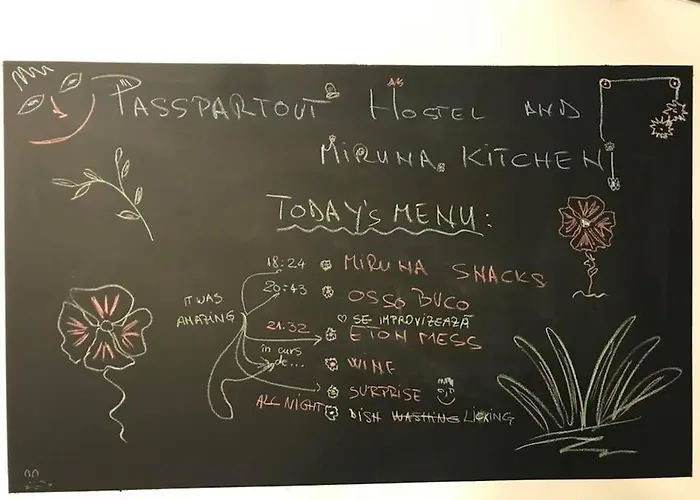 PASSPARTOUT HOSTEL AND
MIRUNA KITCHEN
TODAY'S MENU:
18:24 MIRUNA SNACKS
20:43 OSSO BUCO
IT WAS
AMAZING
♡ SE IMPROVIZEAZĂ
21:32 ETON MESS
in curs
de... WINE
SURPRISE
ALL NIGHT DISH WASHING LICKING